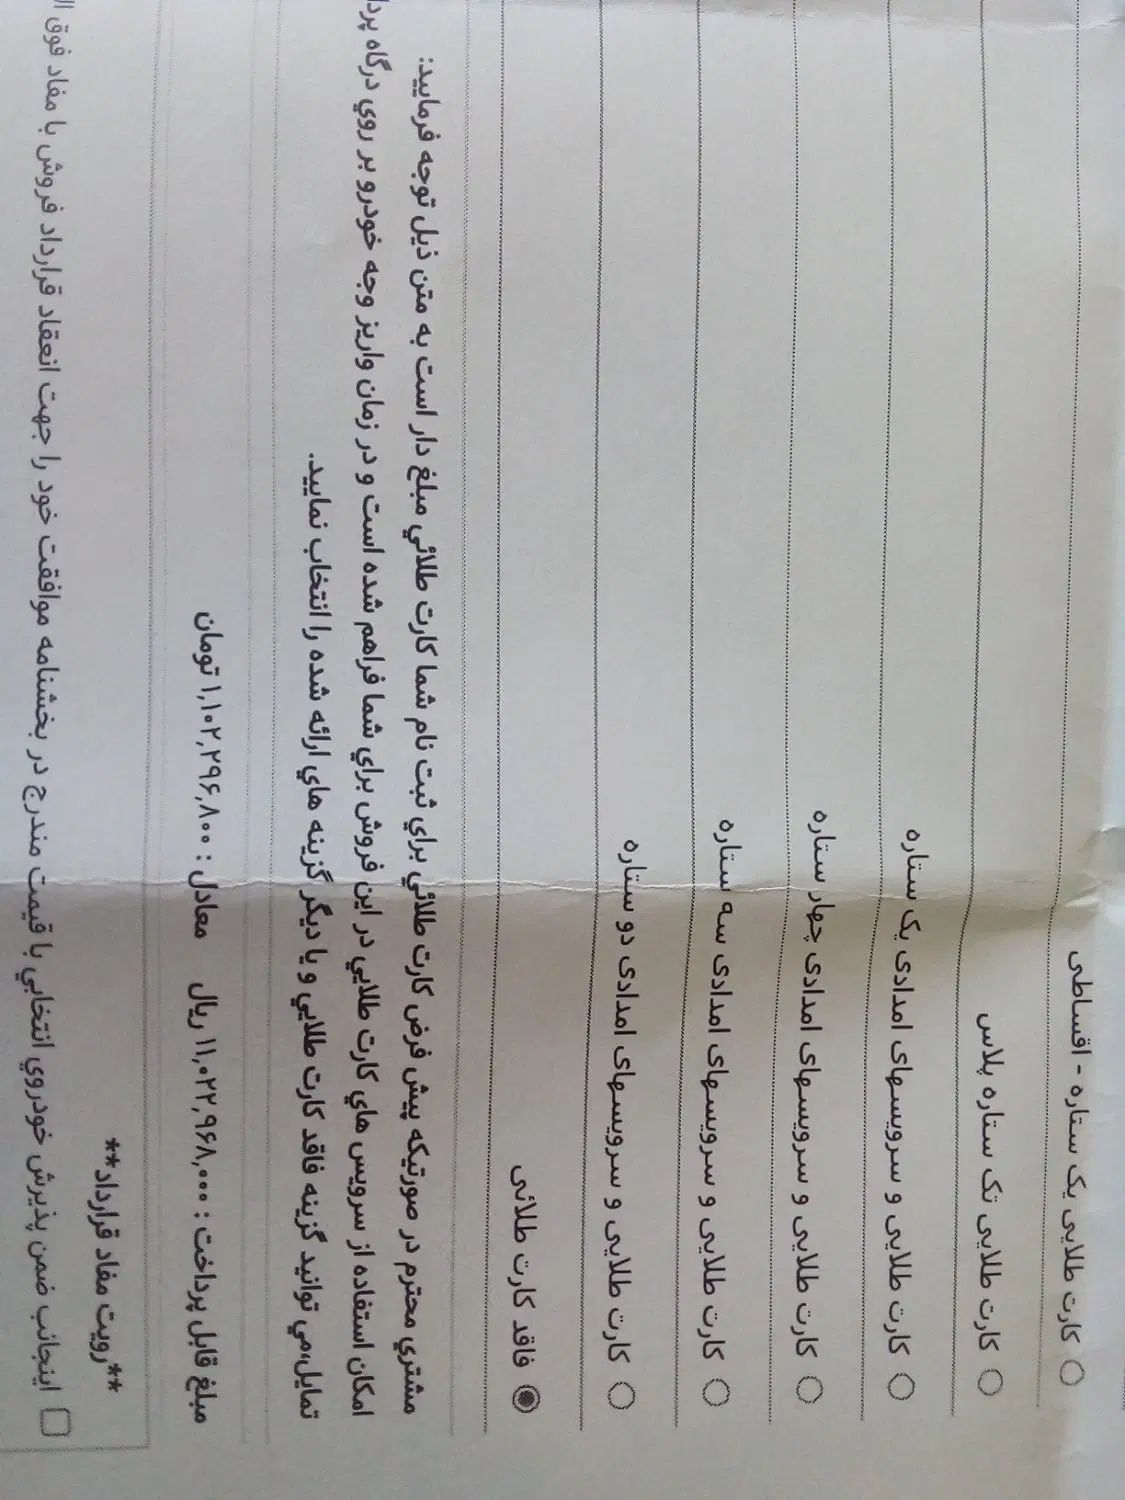 کارت طلایی یک ستاره - اقساطی
کارت طلایی تک ستاره پلاس
کارت طلایی و سرویسهای امدادی یک ستاره
کارت طلایی و سرویسهای امدادی چهار ستاره
کارت طلایی و سرویسهای امدادی سه ستاره
کارت طلایی و سرویسهای امدادی دو ستاره
فاقد کارت طلائی
مشتري محترم در صورتیکه پیش فرض کارت طلائي براي ثبت نام شما کارت طلائي مبلغ دار است به متن ذیل توجه فرمایید:
امکان استفاده از سرویس هاي کارت طلایي در این فروش براي شما فراهم شده است و در زمان واریز وجه خودرو بر روي درگاه
تمایل،مي توانید گزینه فاقد کارت طلایي و یا دیگر گزینه هاي ارائه شده را انتخاب نمایید.
مبلغ قابل پرداخت : ۱۱,۰۲۲,۹۶۸,۰۰۰ ریال معادل : ۱,۱۰۲,۲۹۶,۸۰۰ تومان
**رویت مفاد قرارداد**
اینجانب ضمن پذیرش خودروي انتخابي با قیمت مندرج در بخشنامه موافقت خود را جهت انعقاد قرارداد فروش با مفاد فوق